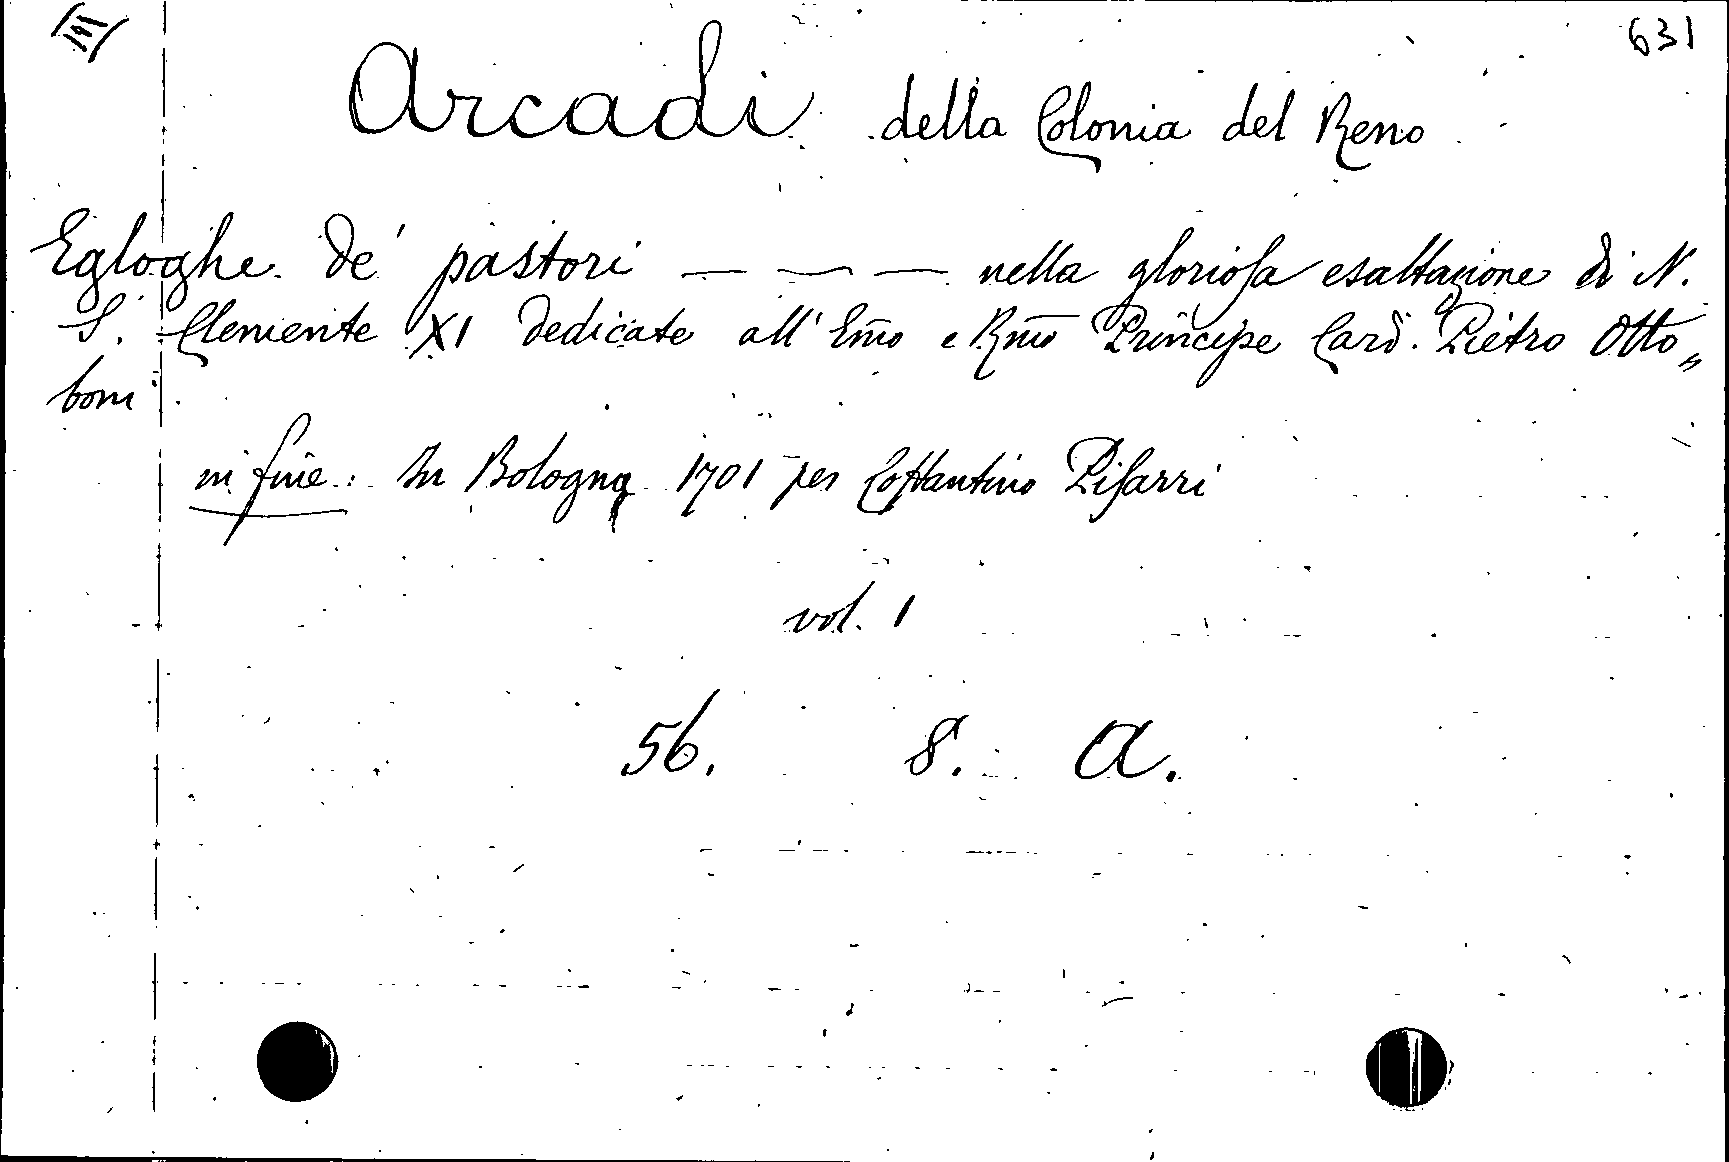 631
Arcadi della Colonia del Reno
Egloghe de' pastori — — — nella glorioſa esaltazione di N.
S. Clemente XI dedicate all' Em̃o e Rm̃o Principe Card. Pietro Otto„
boni
in fine: In Bologna 1701 per Coſtantino Piſarri
vol. 1
56. 8. A.